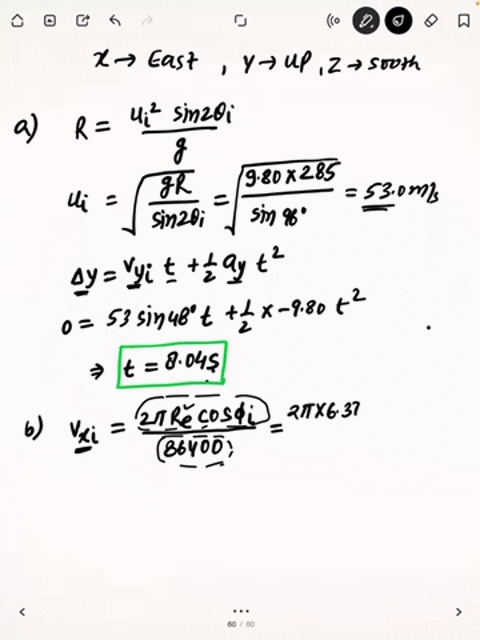 x → East , Y → UP , Z → south
a) R = ui² sin2θi / g
ui = √(gR / sin2θi) = √(9.80 × 285 / sin 96°) = 53.0 m/s
Δy = vyi t + 1/2 ay t²
0 = 53 sin48° t + 1/2 × -9.80 t²
⇒ t = 8.04s
b) vxi = 2πRe cosϕi / 86400 = 2π×6.37
60 / 60